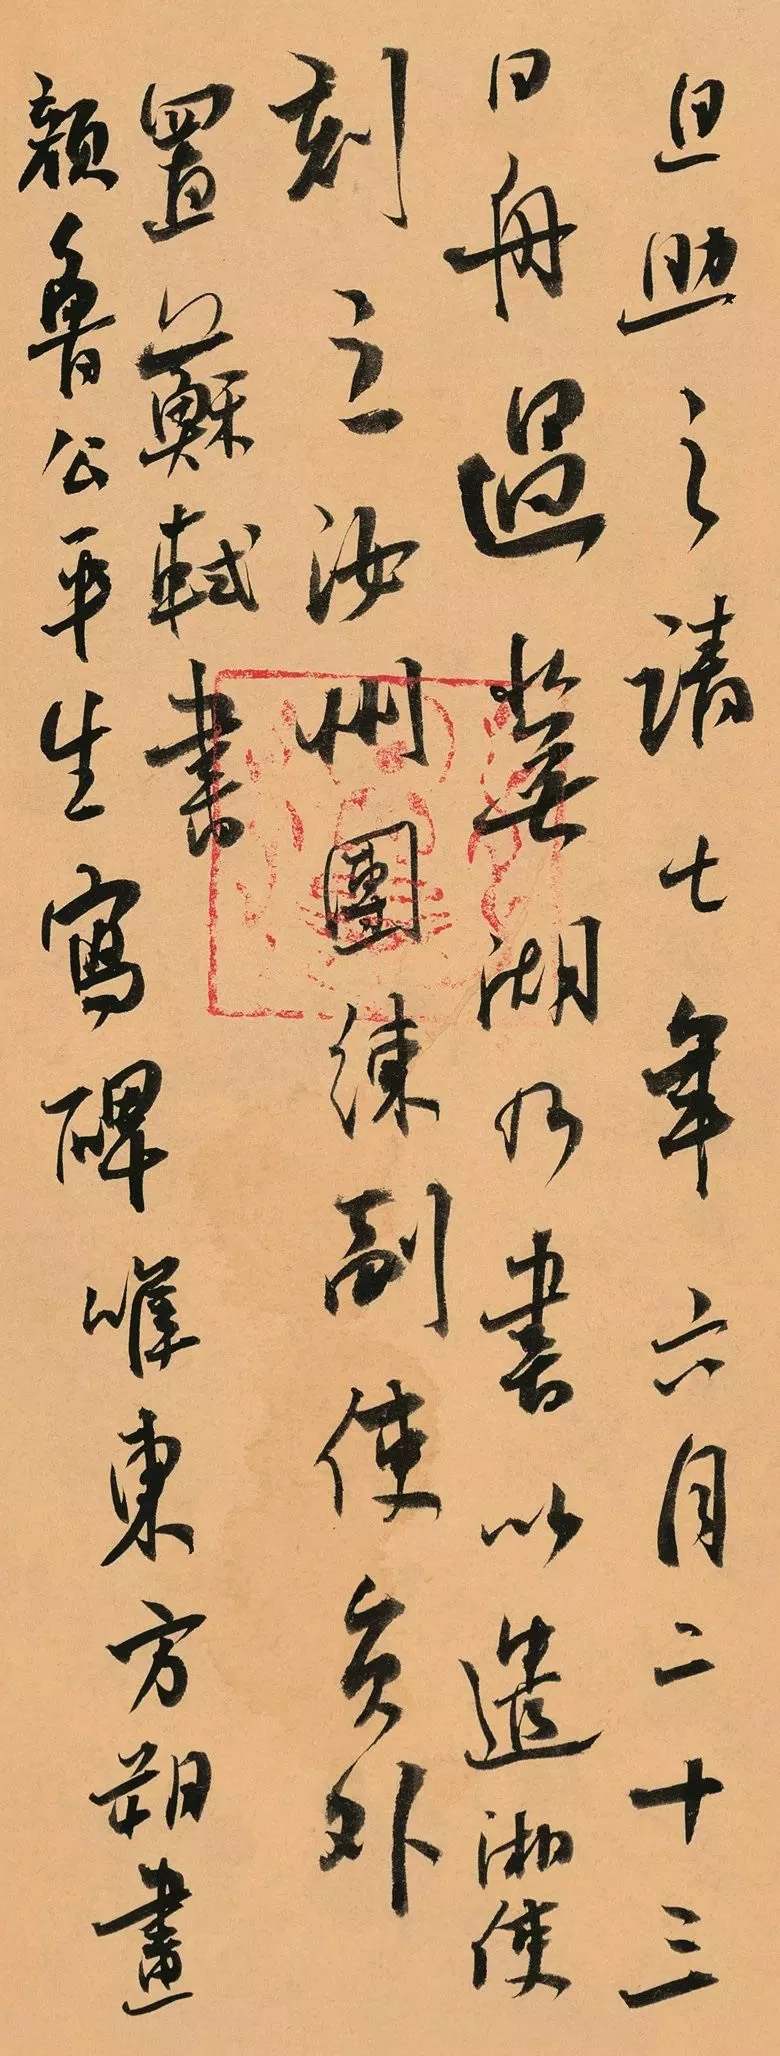 且助之請七年六月二十三
日舟過蕪湖乃書以遺湘使
刻之汝州團練副使員外
置蘇軾書
顏魯公平生寫碑唯東方朔畫